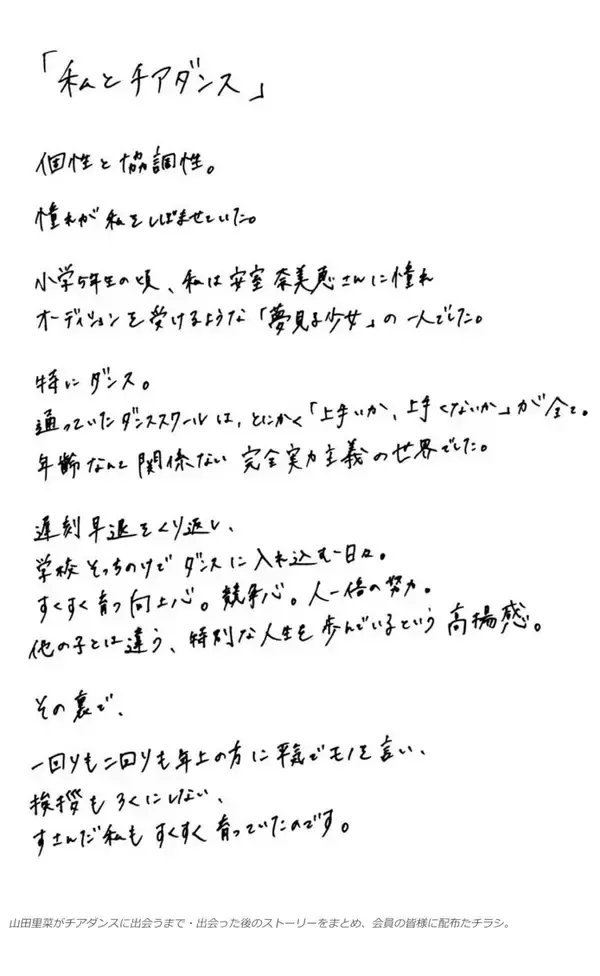 「私とチアダンス」
個性と協調性。
憧れが私をしばませていた。
小学5年生の頃、私は安室奈美恵さんに憧れ
オーディションを受けるような「夢見る少女」の一人でした。
特にダンス。
通っていたダンススクールは、とにかく「上手いか、上手くないか」が全て。
年齢なんて関係ない完全実力主義の世界でした。
遅刻早退をくり返し、
学校そっちのけでダンスに入れ込む日々。
すくすく育つ向上心。競争心。人一倍の努力。
他の子とは違う、特別な人生を歩んでいるという高揚感。
その裏で、
一回りも二回りも年上の方に平気でモノを言い、
挨拶もろくにしない、
すさんだ私もすくすく育っていたのです。
山田里菜がチアダンスに出会うまで・出会った後のストーリーをまとめ、会員の皆様に配布たチラシ。